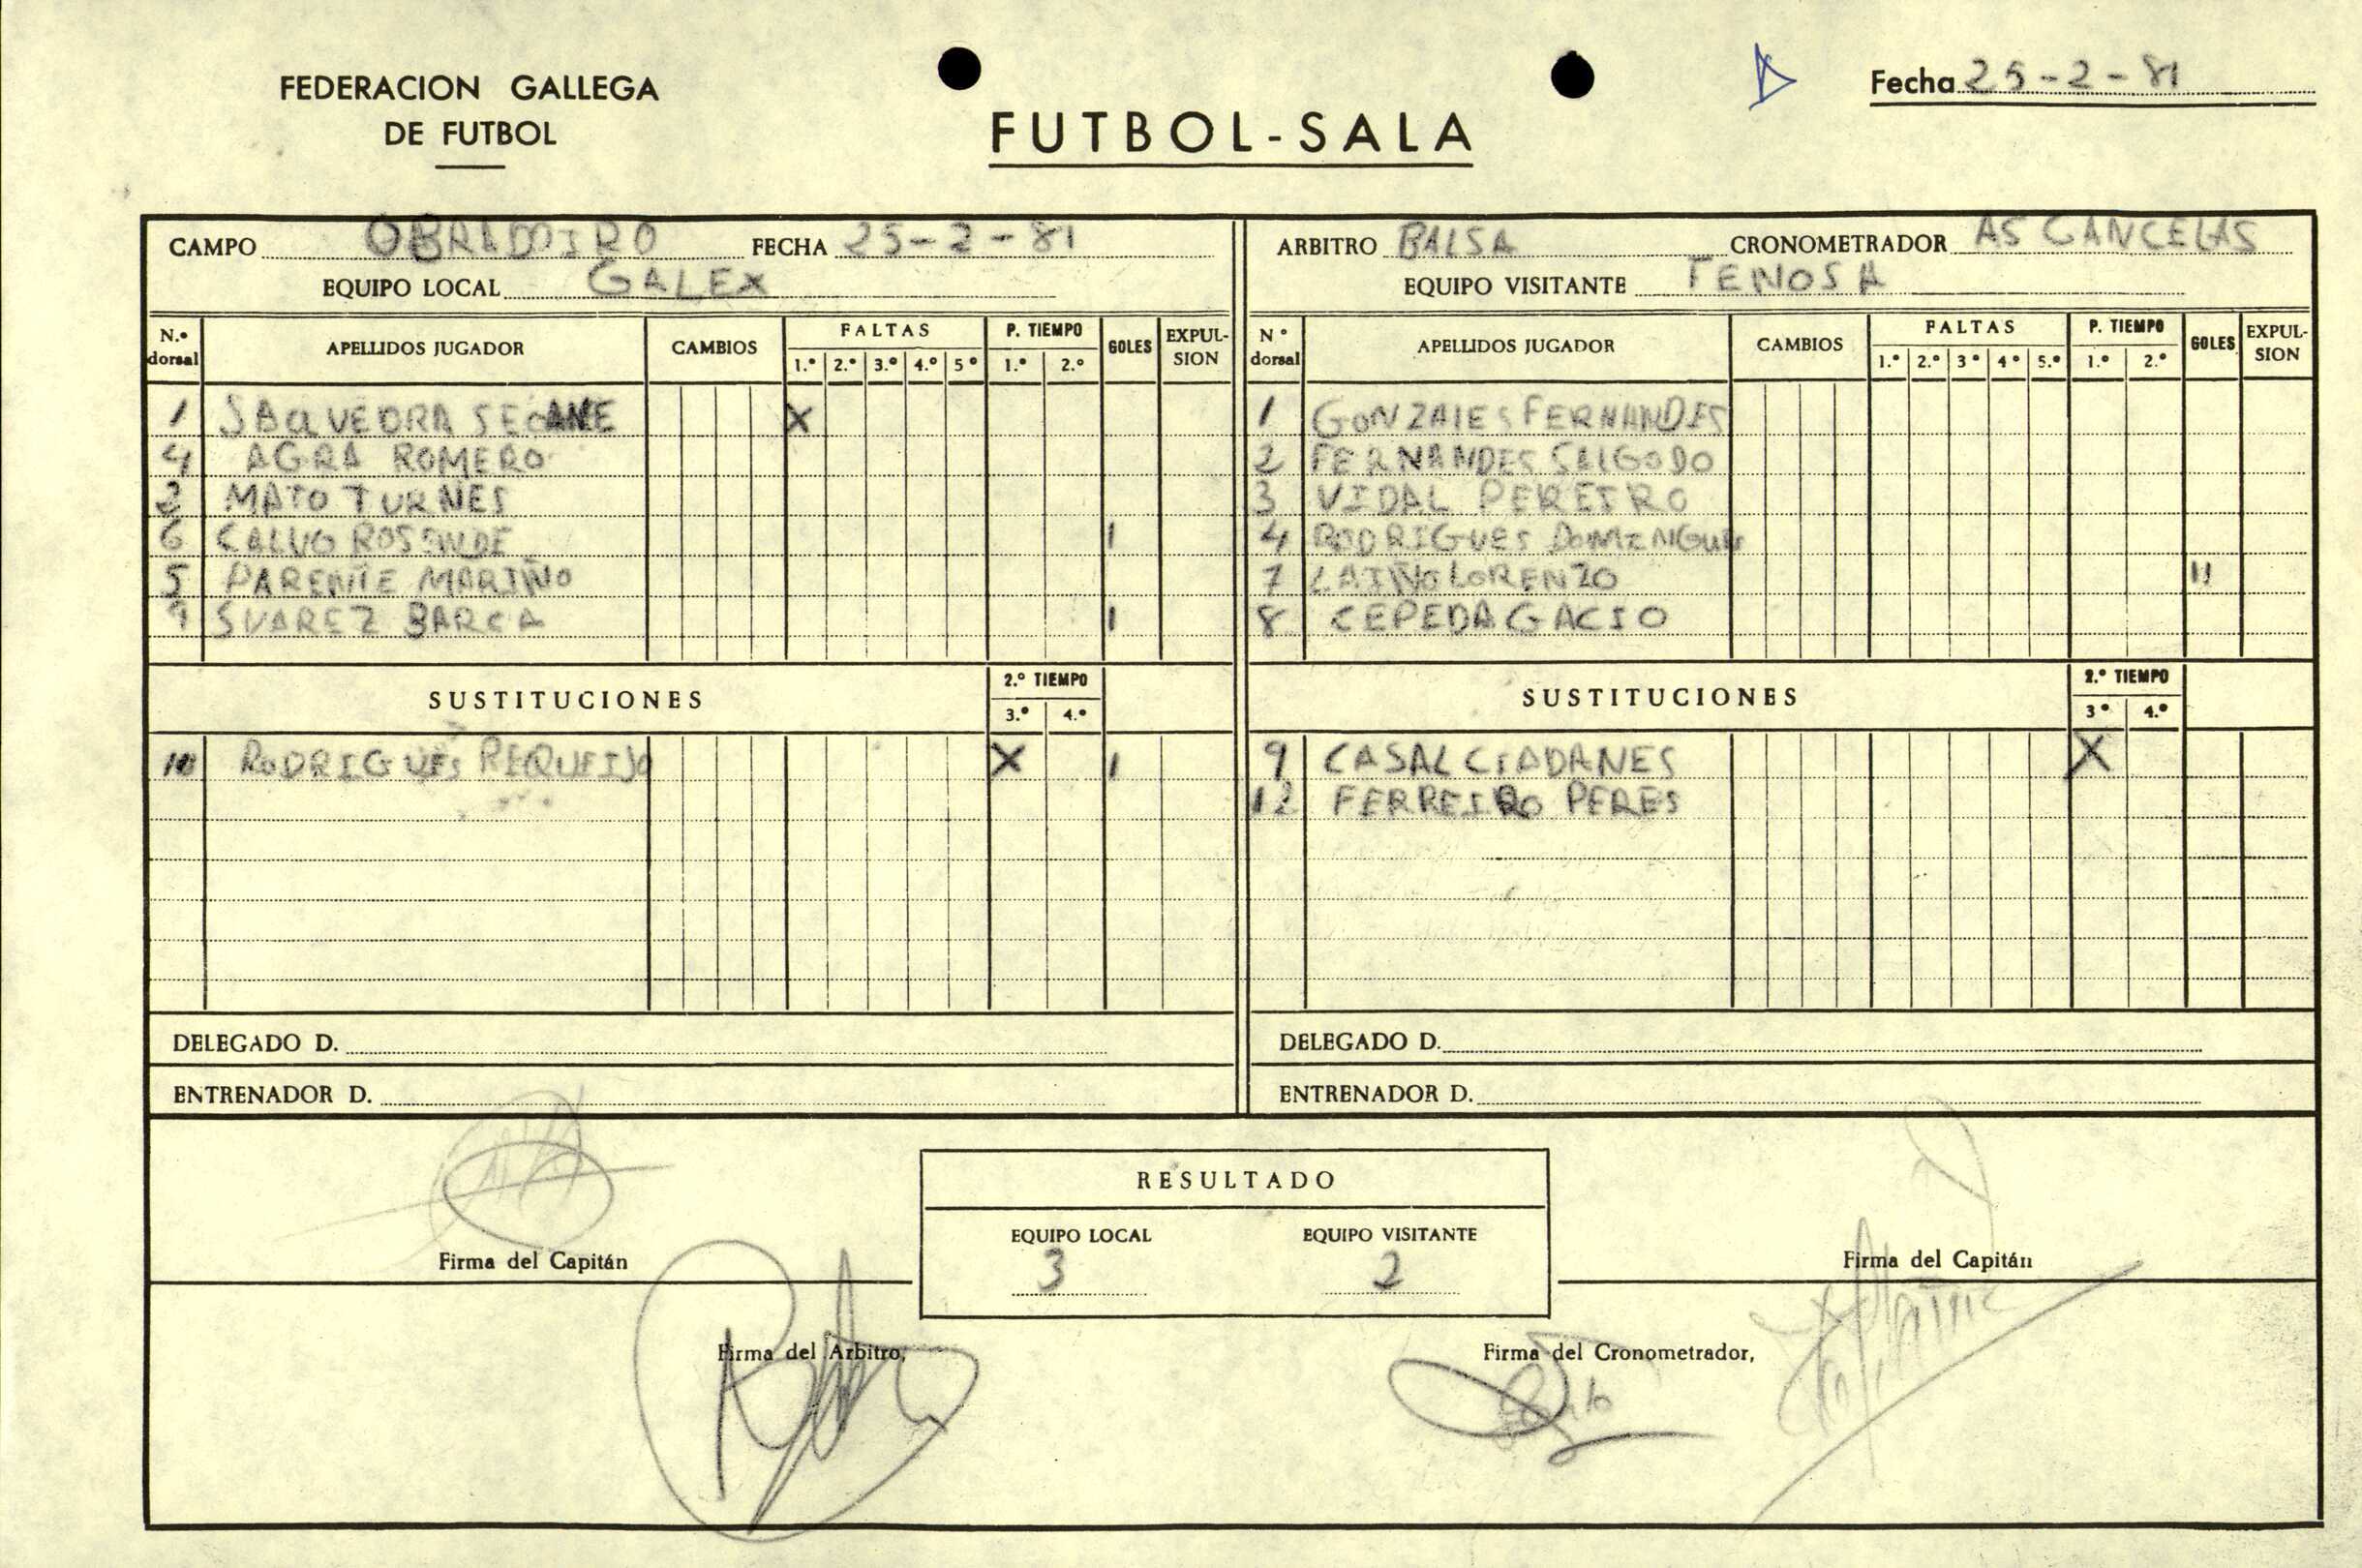 FEDERACION GALLEGA
DE FUTBOL
FUTBOL-SALA
Fecha 25-2-81
CAMPO OBRADOIRO FECHA 25-2-81
EQUIPO LOCAL GALEX
N.º dorsal APELLIDOS JUGADOR CAMBIOS FALTAS 1.º 2.º 3.º 4.º 5º P. TIEMPO 1.º 2.º GOLES EXPUL-SION
1 SAaVEDRA SEOANE X
4 AGRA ROMERO
2 MATO TURNES
6 CALVO ROSENDE 1
5 PARENTE MARIÑO
9 SUAREZ BARCA 1
SUSTITUCIONES 2.º TIEMPO 3.º 4.º
10 RODRIGUES REQUEIJO X 1
DELEGADO D.
ENTRENADOR D.
ARBITRO BALSA CRONOMETRADOR AS CANCELAS
EQUIPO VISITANTE TENOSA
Nº dorsal APELLIDOS JUGADOR CAMBIOS FALTAS 1.º 2.º 3º 4º 5.º P. TIEMPO 1.º 2.º GOLES EXPUL-SION
1 GONZALES FERNANDES
2 FERNANDES SALGODO
3 VIDAL PEREIRO
4 RODRIGUES DOMINGUES
7 LATIÑO LORENZO 11
8 CEPEDA GACIO
SUSTITUCIONES 2.º TIEMPO 3º 4.º
9 CASAL CIADANES X
12 FERREIRO PERES
DELEGADO D.
ENTRENADOR D.
RESULTADO
EQUIPO LOCAL EQUIPO VISITANTE
3 2
Firma del Capitán
Firma del Capitán
Firma del Arbitro,
Firma del Cronometrador,